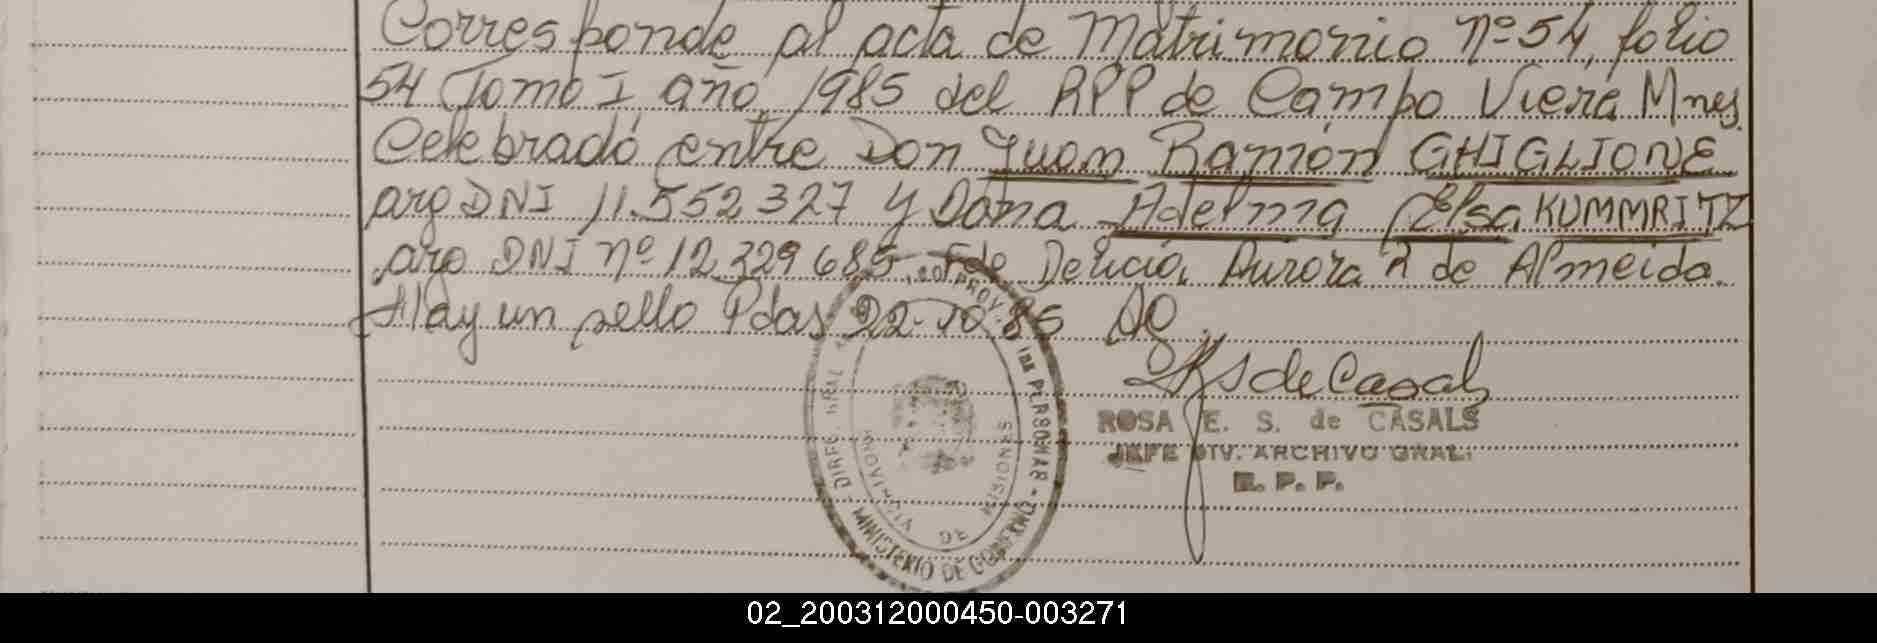 Corresponde al acta de Matrimonio nº 54, folio
54 Tomo I año 1985 del RPP de Campo Viera Mnes.
Celebrado entre Don Juan Ramón GHIGLIONE
arg DNI 11.552.327 y Doña Adelma Elsa KUMMRITZ
arg DNI nº 12.329.685. Fdo Delicia Aurora R de Almeida.
Hay un sello Pdas 22-10-85
S de Casals
ROSA E. S. de CASALS
JEFE DIV. ARCHIVO GRAL.
R. P. P.
MINISTERIO DE GOBIERNO
PROVINCIA DE MISIONES
02_200312000450-003271